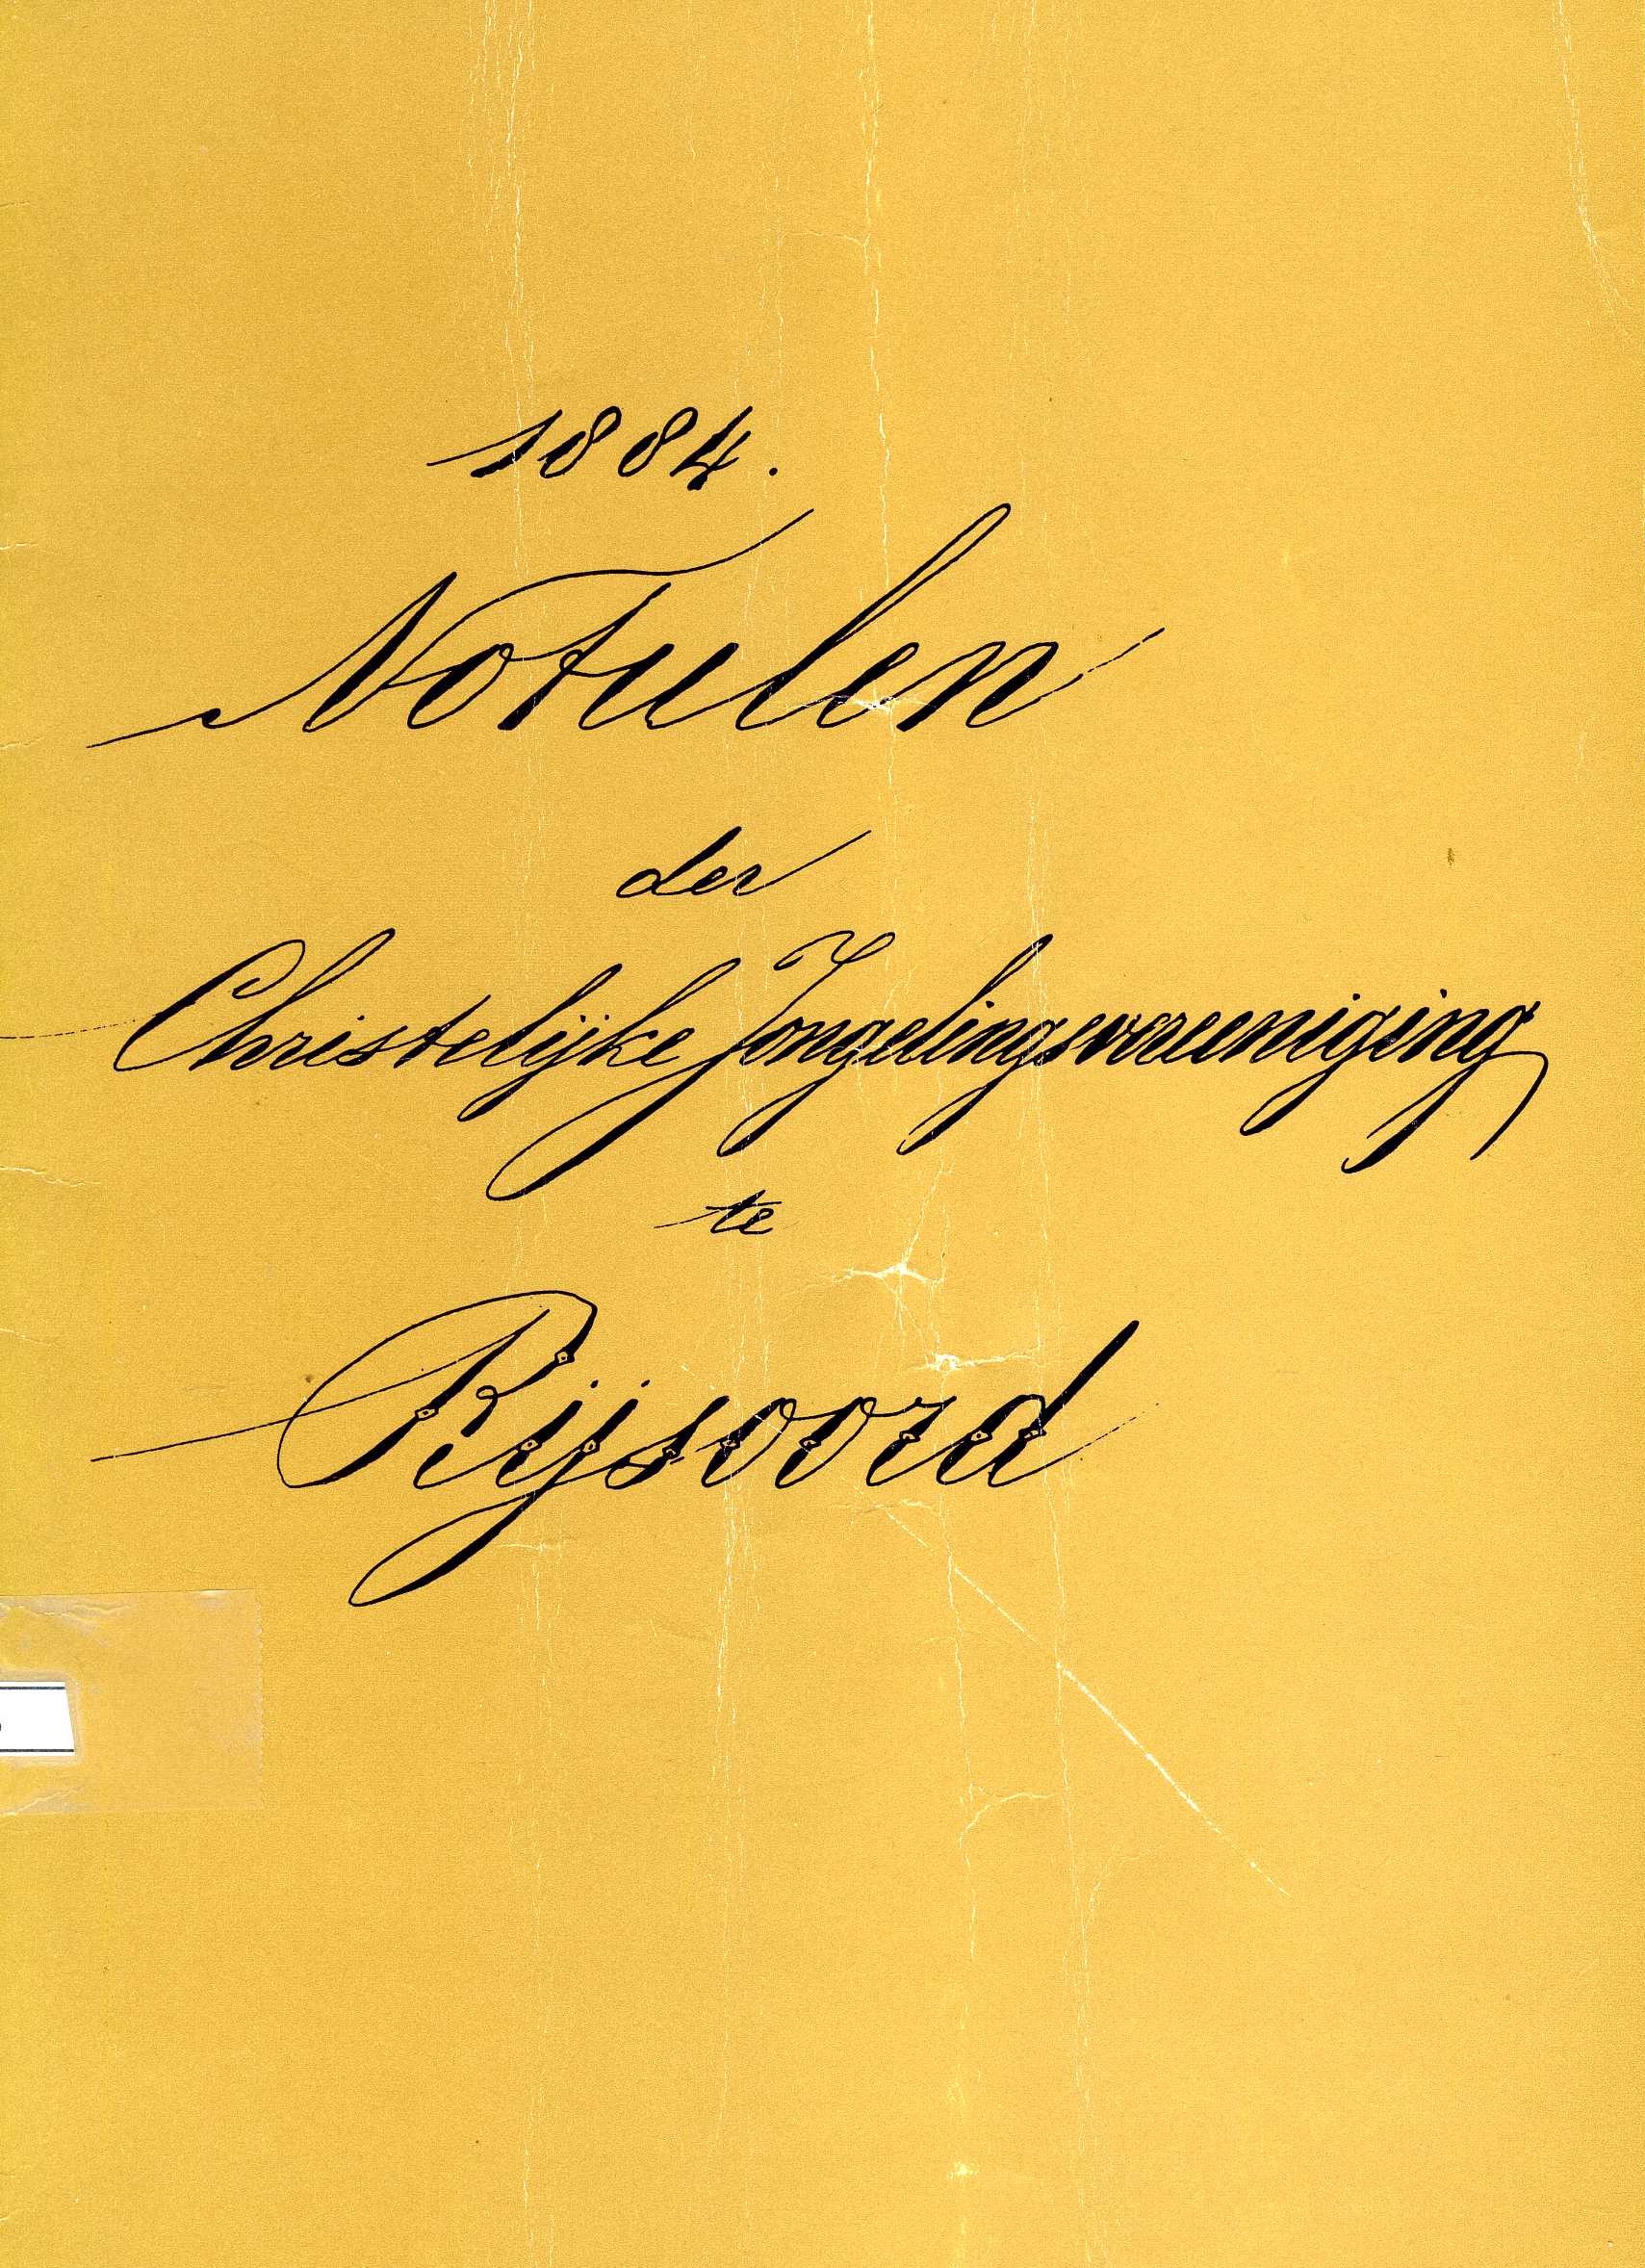 1884.
Notulen
der
Christelijke Jongelingsvereeniging
te
Rijsoord